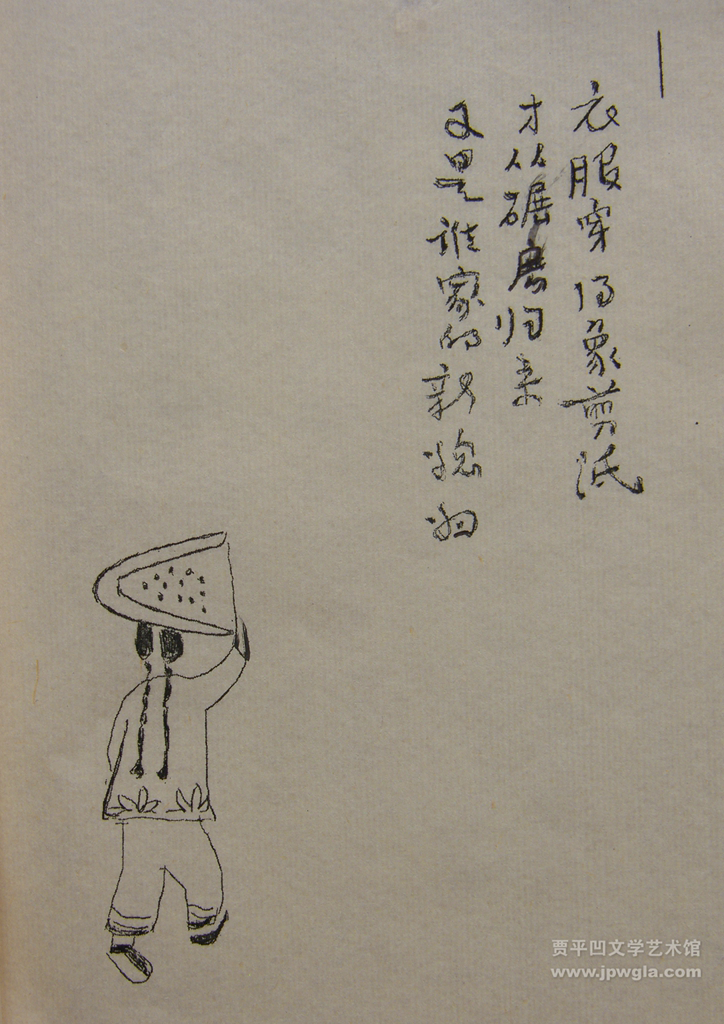 一
衣服穿得象剪纸
才从碾房归来
又是谁家的新媳妇
贾平凹文学艺术馆
www.jpwgla.com